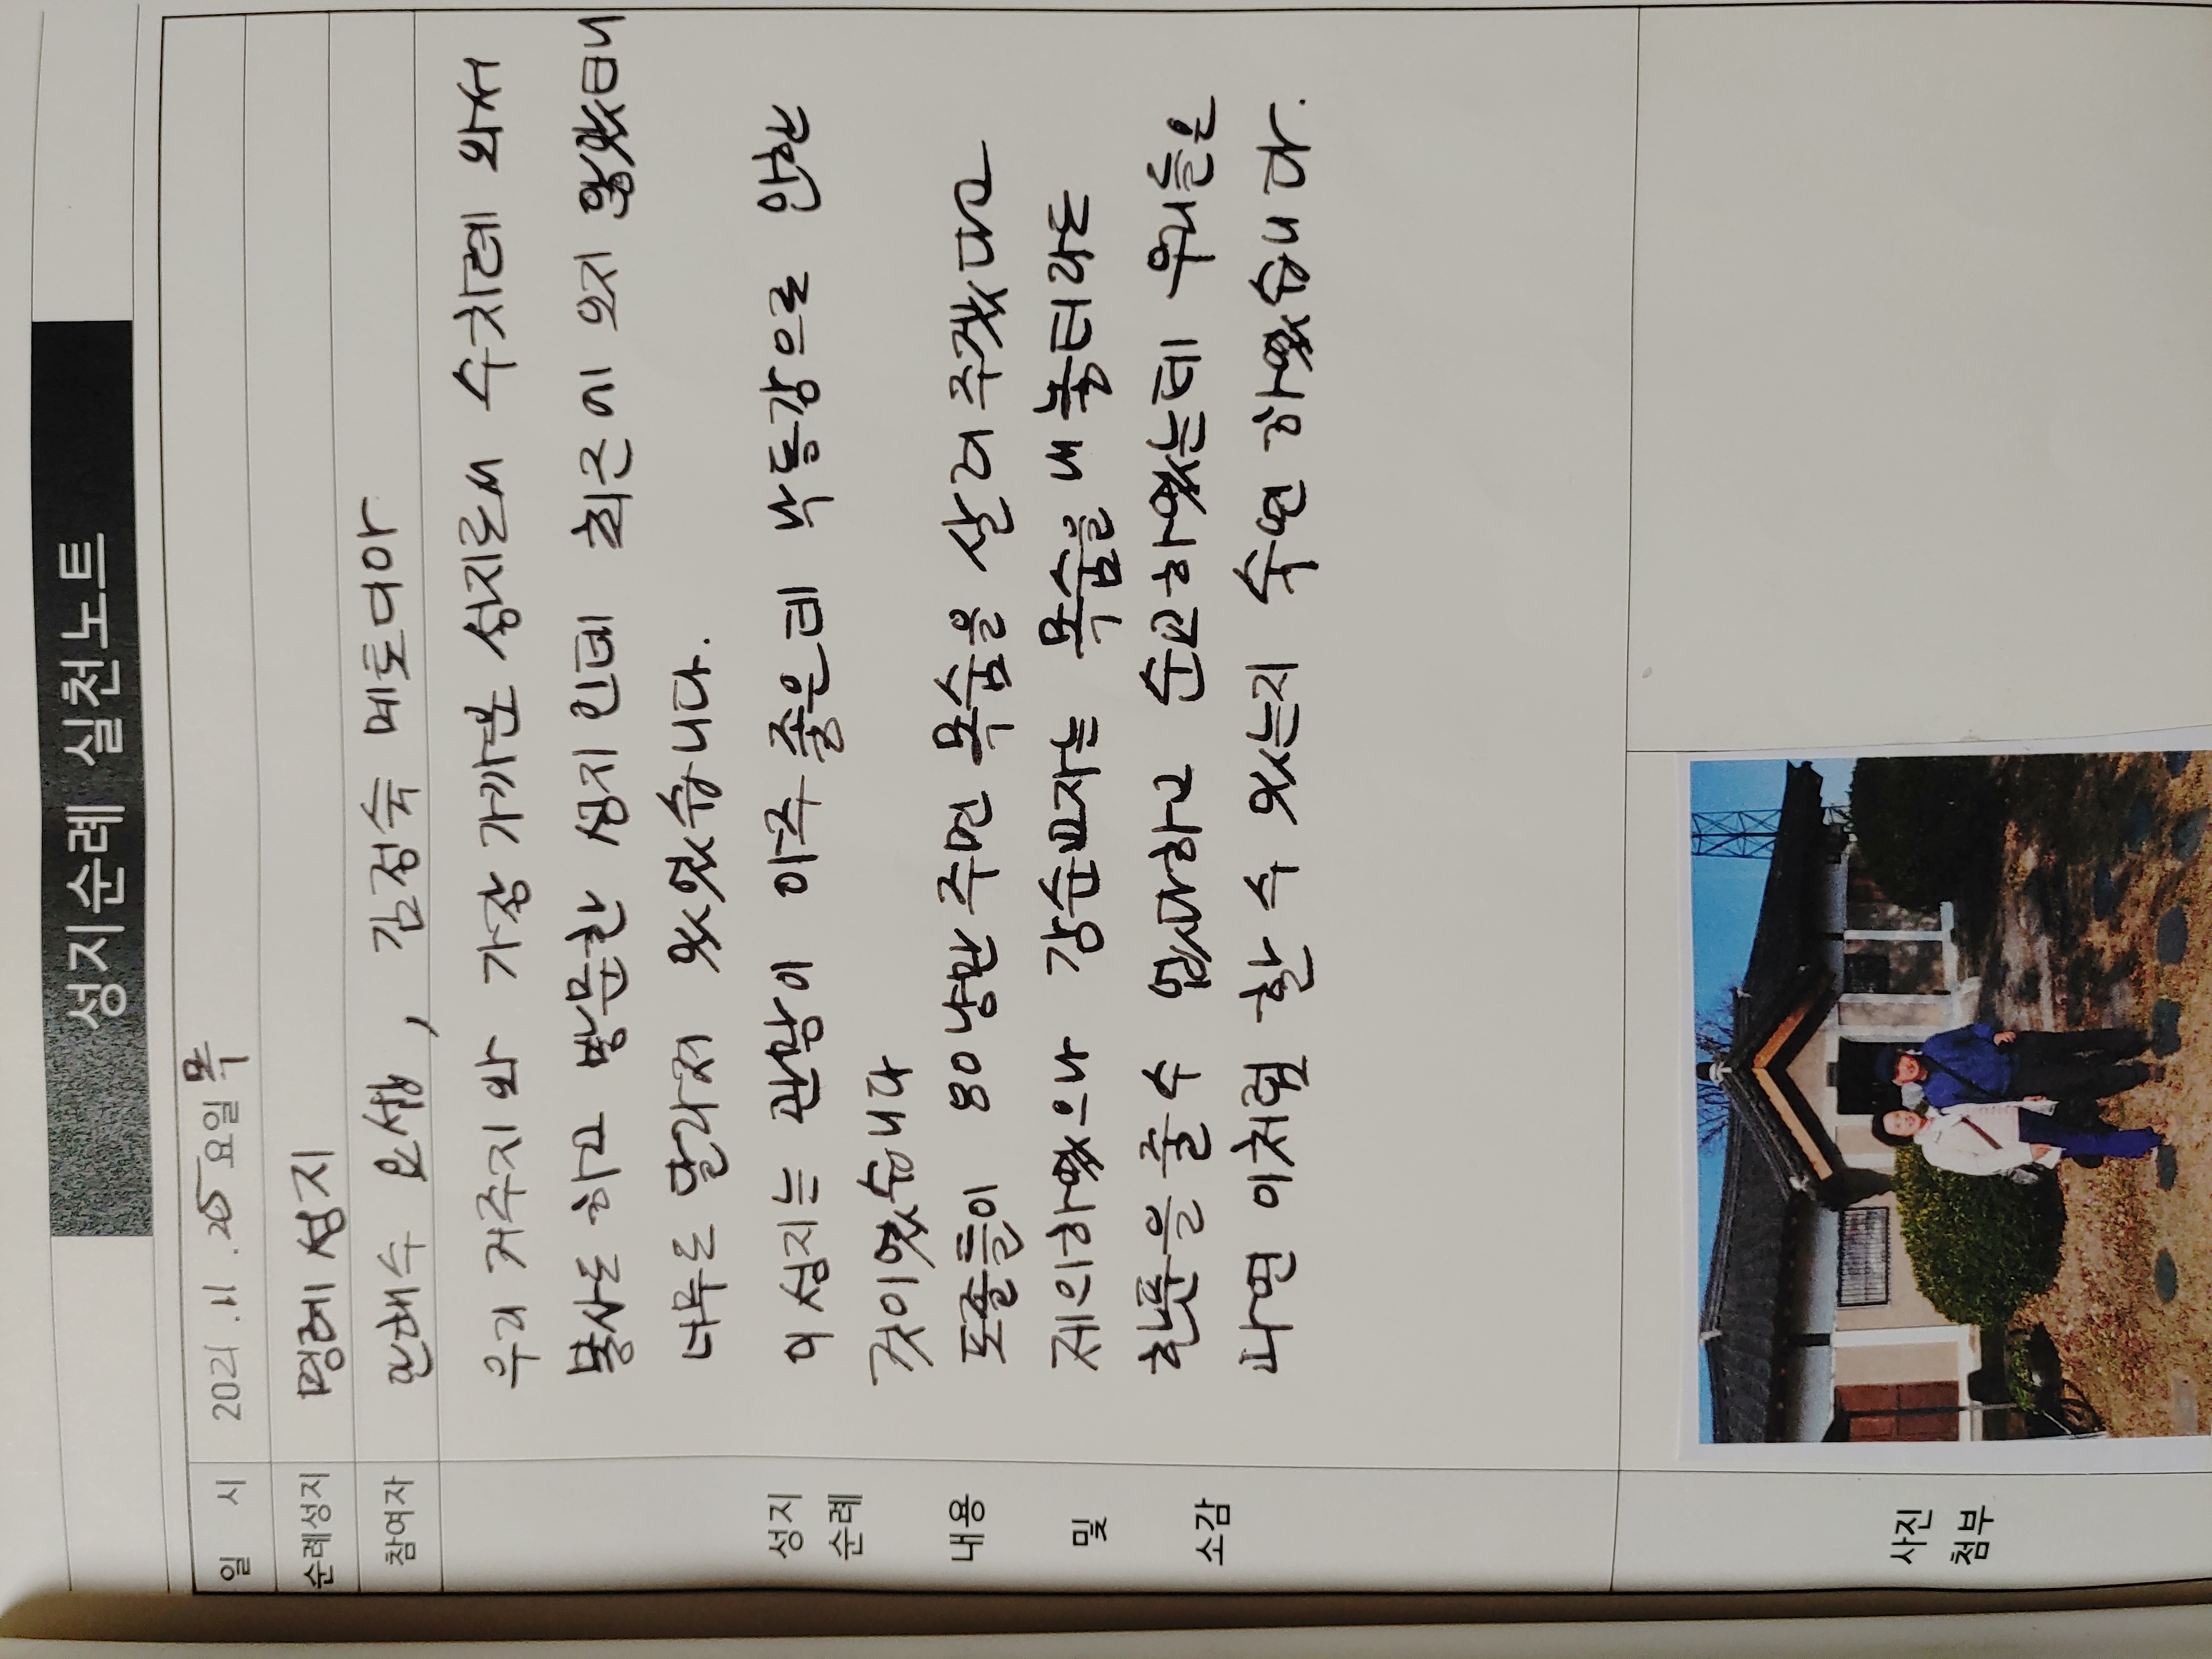 성지순례 실천노트
일 시 2021. 11. 25 요일 목
순례성지 명례성지
참여자 안해수 요셉, 김정숙 메토디아
우리 거주지와 가장 가까운 성지로써 수차례 와서
봉사도 하고 방문한 성지인데 최근에 와서
너무도 달라져 있었습니다.
이 성지는 전망이 아주 좋은데 낙동강으로 인한
것이었습니다
성지
순례
내용
및
소감
포졸들이 80냥만 주면 목숨을 살려주겠다고
제의하였으나 강순교자는 목숨을 내놓더라도
한푼을 줄 수 없다하고 순교하였는데 우리들은
나면 이처럼 할 수 있는지 수면 하였습니다.
사진
첨부